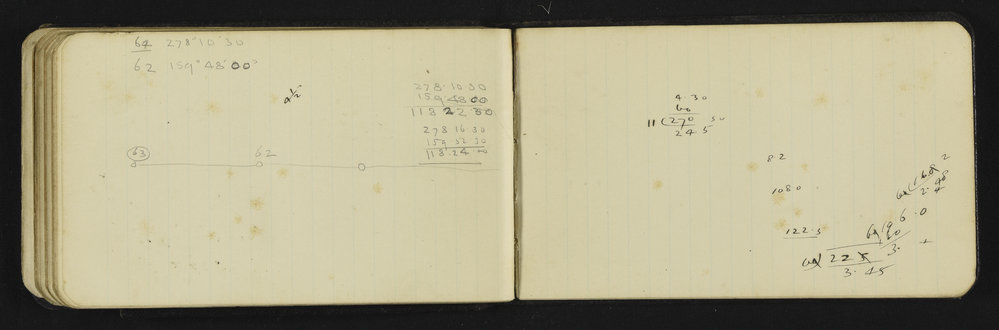 64 278° 10' 30
62 159° 48' 00"
278. 10. 30
159 48 00
118 22 30
278 16 30
159 52 30
118. 24 00
63
62
4. 30
60
11 ( 270 30
24 5
82
1080
122. 5
2
2. 48
6. 0
90
3.
60) 225
3. 45